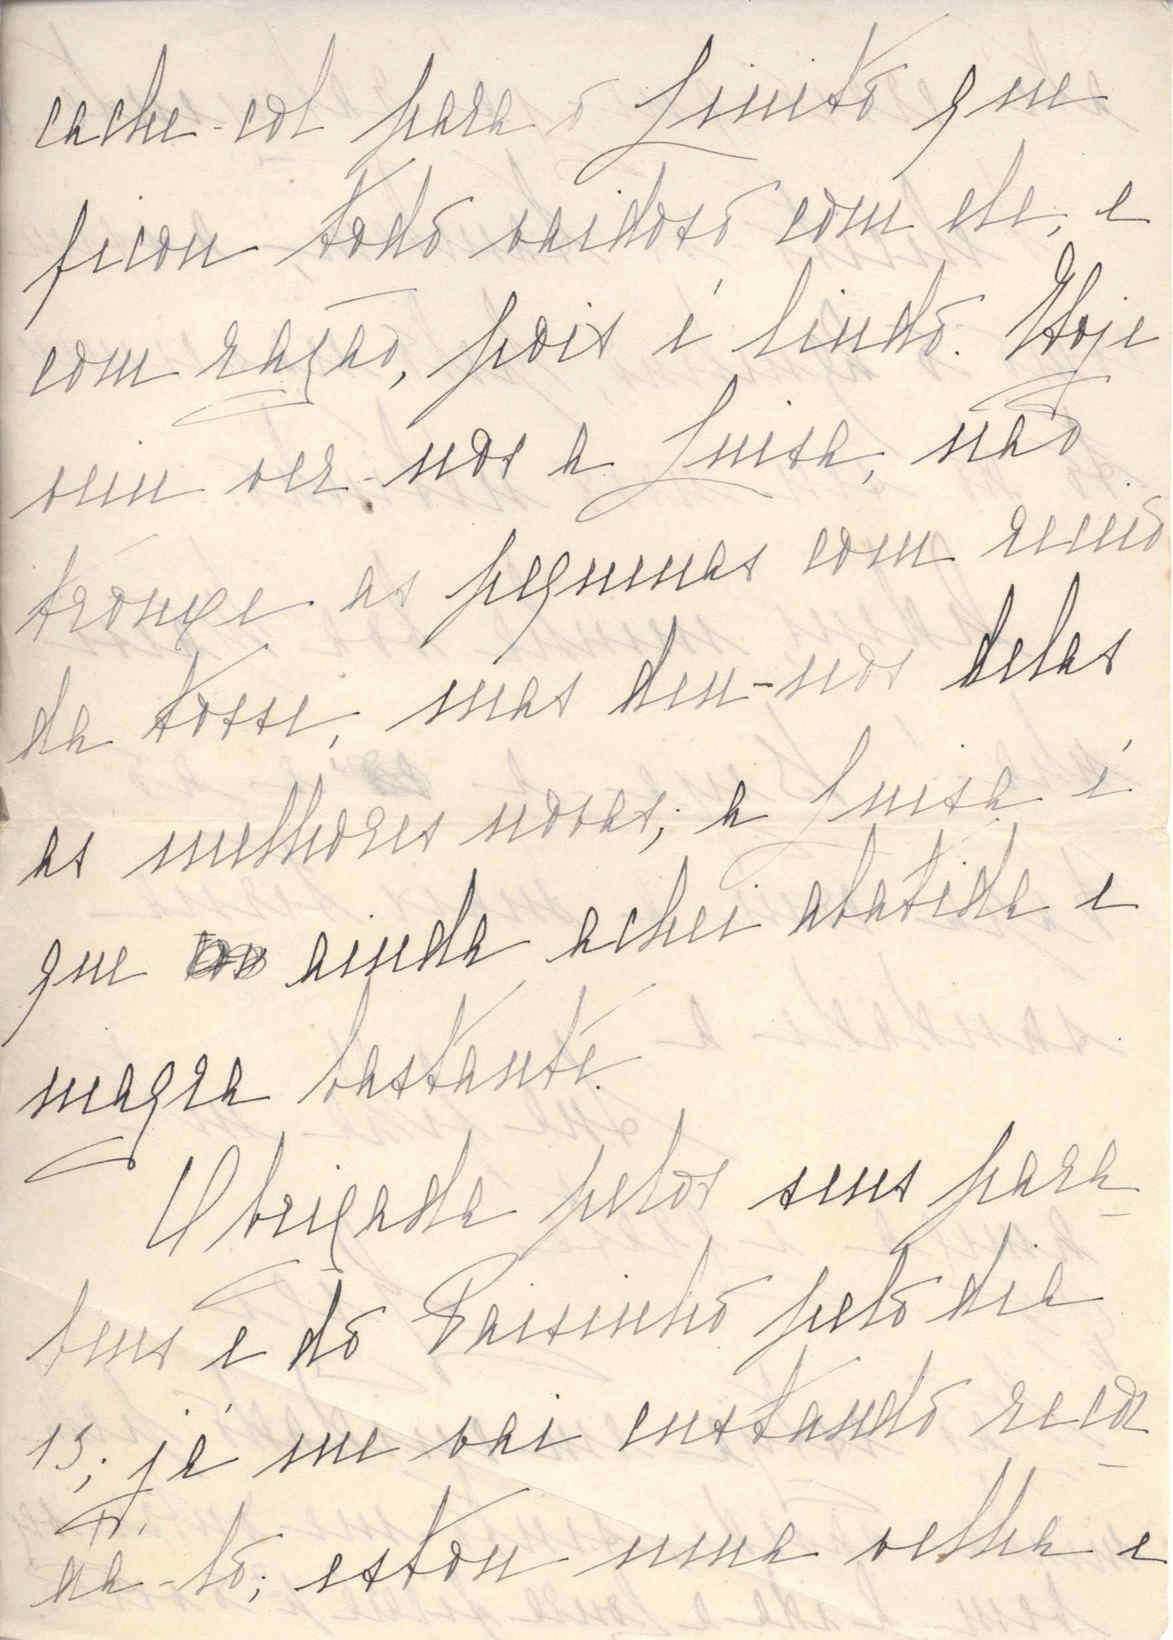 cache-col para o Luisito que
ficou todo vaidoso com ele, e
com razão, pois é lindo. Hoje
veiu ver-nos a Luisa, não
trouxe as pequenas com receio
da tosse, mas deu-nos delas
as melhores novas; a Luisa é
que ainda achei abatida e
magra bastante.
Obrigada pelos seus para-
bens e do Paisinho pelo dia
15; já me vai custando recor-
da-lo; estou uma velha e